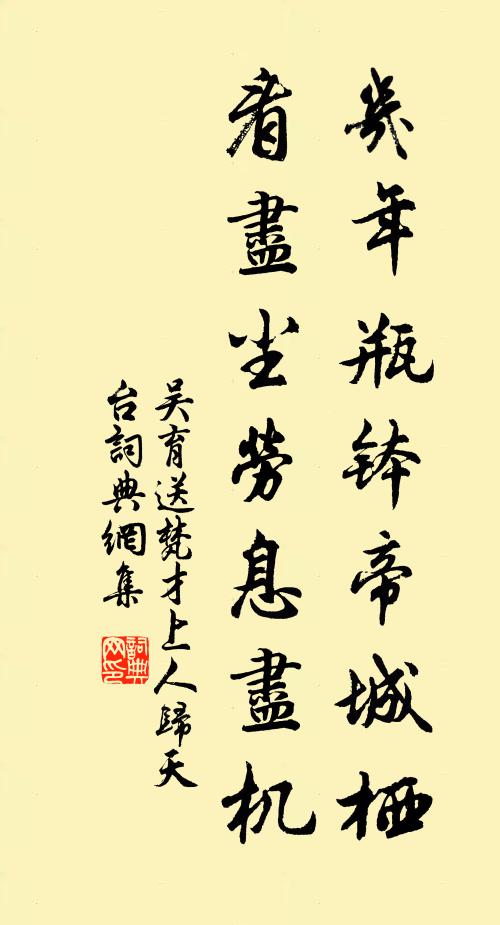 幾年瓶鉢帝城栖
看盡尘勞息盡机
吴育送梵才上人歸天
台詞典網集
詞典网印